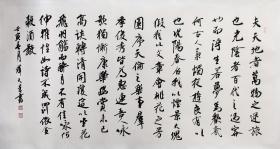 夫天地者萬物之逆旅
也光陰者百代之過客也
而浮生若夢為歡幾
何古人秉燭夜遊良有以
也況陽春召我以煙景大塊
假我以文章會桃花之芳
園序天倫之樂事群
季俊秀皆為惠連吾人詠
歌獨慚康樂幽賞未已
高談轉清開瓊筵以坐花
飛羽觴而醉月不有佳詠何
伸雅懷如詩不成罰依金
谷酒數